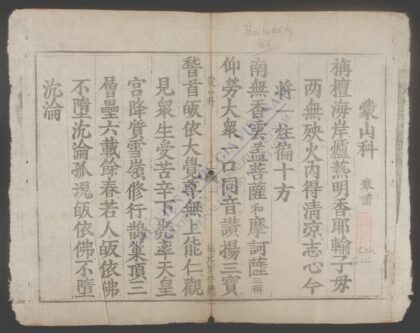 蒙山科
栴檀海岸爐爇明香耶輸子母
两無殃火内得清凉志心今
將一炷徧十方
南無香雲盖菩薩和摩訶薩三稱
仰勞大衆口同音讃揚三寳
蒙山科
稽首皈依大覺尊無上能仁觀
見衆生受苦辛下兠率天皇
宮降質雪嶺修行鵲巢頂三
層壘六載餘春若人皈依佛
不墮沉淪孤魂皈依佛不墮
沉淪